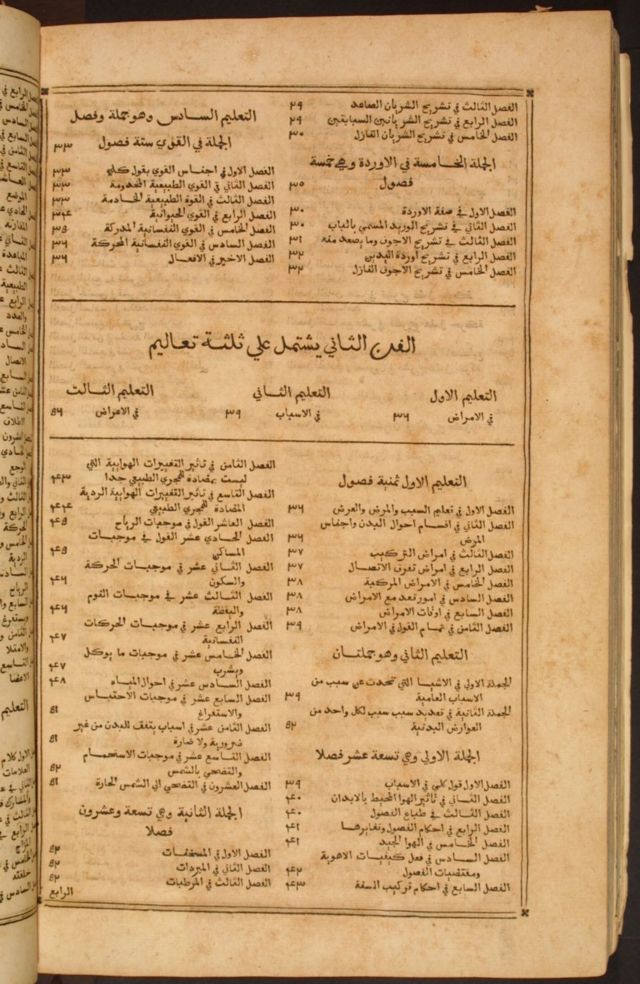 الفصل الثالث في تشريح الشريان الصاعد ٢٩
الفصل الرابع في تشريح الشريانين السباتيين ٢٩
الفصل الخامس في تشريح الشريان النازل ٣٠
الجملة الخامسة في الاوردة وهي خمسة
فصول ٣٥
الفصل الاول في صفة الاوردة ٣٠
الفصل الثاني في تشريح الوريد المسمي بالباب ٣٠
الفصل الثالث في تشريح الاجوف وما يصعد منه ٣١
الفصل الرابع في تشريح اوردة اليدين ٣٢
الفصل الخامس في تشريح الاجوف النازل ٣٢
التعليم السادس وهو جملة وفصل
الجملة في القوي ستة فصول ٣٣
الفصل الاول في اجناس القوي بقول كلي ٣٣
الفصل الثاني في القوي الطبيعية المخدومة ٣٣
الفصل الثالث في القوة الطبيعية الخادمة ٣٣
الفصل الرابع في القوي الحيوانية ٣۴
الفصل الخامس في القوي النفسانية المدركة ٣۵
الفصل السادس في القوي النفسانية المحركة ٣۶
الفصل الاخير في الافعال ٣۶
الفن الثاني يشتمل علي ثلثة تعاليم
التعليم الاول
في الامراض ٣۶
التعليم الثاني
في الاسباب ٣٩
التعليم الثالث
في الاعراض ۵۶
التعليم الاول ثمنية فصول
الفصل الاول في تعليم السبب والمرض والعرض ٣۶
الفصل الثاني في اقسام احوال البدن واجناس
المرض ٣۶
الفصل الثالث في امراض التركيب ٣٧
الفصل الرابع في امراض تفرق الاتصال ٣٧
الفصل الخامس في الامراض المركبة ٣٨
الفصل السادس في امور تعد مع الامراض ٣٨
الفصل السابع في اوقات الامراض ٣٨
الفصل الثامن في تمام القول في الامراض ٣٩
التعليم الثاني وهو جملتان
الجملة الاولي في الاشيا التي تحدث عن سبب من
الاسباب العامية ٣٩
الجملة الثانية في تعديد سبب سبب لكل واحد من
العوارض البدنية ۵٢
الجملة الاولي وهي تسعة عشر فصلا
الفصل الاول قول كلي في الاسباب ٣٩
الفصل الثاني في تاثير الهوا المحيط بالابدان ۴٠
الفصل الثالث في طباع الفصول ۴٠
الفصل الرابع في احكام الفصول وتغايرها ۴١
الفصل الخامس في الهوا الجيد ۴١
الفصل السادس في فعل كيفيات الاهوية
ومقتضيات الفصول ۴٢
الفصل السابع في احكام تركيب السنة ۴٣
الفصل الثامن في تاثير التغييرات الهوايية التي
ليست بمضادة للمجري الطبيعي جدا ۴٣
الفصل التاسع في تاثير التغييرات الهوايية الردية
المضادة للمجري الطبيعي ۴۴
الفصل العاشر القول في موجبات الرياح ۴۵
الفصل الحادي عشر القول في موجبات
المساكن ۴۵
الفصل الثاني عشر في موجبات الحركة
والسكون ۴۶
الفصل الثالث عشر في موجبات النوم
واليقظة ۴۶
الفصل الرابع عشر في موجبات الحركات
النفسانية ۴٧
الفصل الخامس عشر في موجبات ما يوكل
ويشرب ۴٧
الفصل السادس عشر في احوال المياه ۴٨
الفصل السابع عشر في موجبات الاحتباس
والاستفراغ ۵١
الفصل الثامن عشر في اسباب يتفق للبدن من غير
ضرورية ولا ضارة ۵١
الفصل التاسع عشر في موجبات الاستحمام
والتضحي بالشمس ۵٢
الفصل العشرون في التضحي الي الشمس الحارة ۵١
الجملة الثانية وهي تسعة وعشرون
فصلا
الفصل الاول في المسخنات ۵٢
الفصل الثاني في المبردات ۵٢
الفصل الثالث في المرطبات ۵٢
الرابع